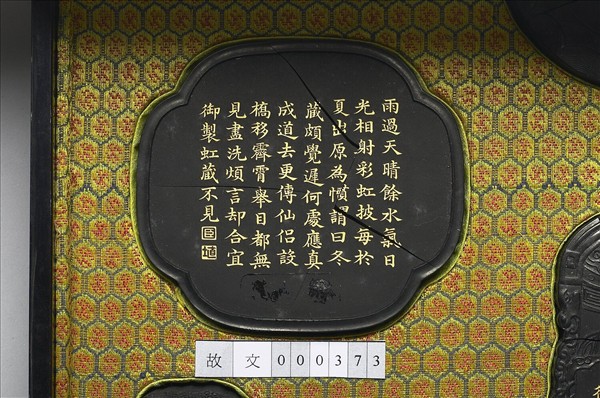 雨過天晴餘水氣日
光相射彩虹披每於
夏出原為慣謂曰冬
藏頗覺遲何處應真
成道去更傳仙侶設
橋移霽霄舉目都無
見盡洗煩言却合宜
御製虹藏不見
故文000373